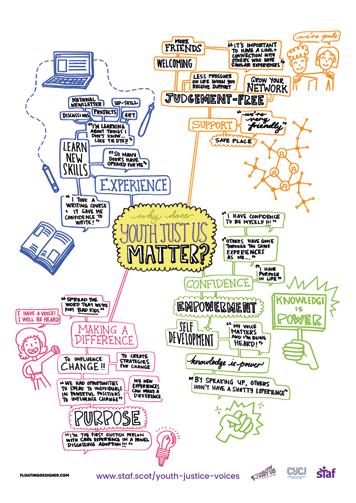 MORE
FRIENDS
WELCOMING
"IT'S IMPORTANT
TO HAVE A LINK +
CONNECTION WITH
OTHERS WHO HAVE
SIMILAR EXPERIENCES"
we're pals
LESS PRESSURE
ON LIFE WHEN YOU
RECEIVE SUPPORT
GROW YOUR
NETWORK
JUDGEMENT-FREE
SUPPORT
"we're
very
friendly"
SAFE PLACE
NATIONAL
NEWSLETTER
UP-SKILL
DISCUSSIONS
PROJECTS
ART
"I'M LEARNING
ABOUT THINGS I
DIDN'T KNOW I
LIKE TO DO!"
LEARN
NEW
SKILLS
"SO MANY
DOORS HAVE
OPENED FOR ME"
EXPERIENCE
"I TOOK A
WRITING COURSE
+ IT GAVE ME
CONFIDENCE TO
WRITE!"
why does
YOUTH JUST US
MATTER?
"I HAVE CONFIDENCE
TO BE MYSELF!!!"
"OTHERS HAVE GONE
THROUGH THE SAME
EXPERIENCES
AS ME..."
"I HAVE
PURPOSE
IN LIFE"
CONFIDENCE
EMPOWERMENT
SELF
DEVELOPMENT
"MY VOICE
MATTERS
AND I'M BEING
HEARD!"
knowledge is power
"BY SPEAKING UP, OTHERS
WON'T HAVE A SHITTY EXPERIENCE"
KNOWLEDGE
IS
POWER
"SPREAD THE
WORD THAT WE'RE
NOT BAD KIDS"
I HAVE A VOICE! I
WILL BE HEARD!
MAKING A
DIFFERENCE
TO INFLUENCE
CHANGE!!
TO CREATE
STRATEGIES
FOR CHANGE
"WE HAD OPPORTUNITIES
TO SPEAK TO INDIVIDUALS
IN POWERFUL POSITIONS
TO INFLUENCE CHANGE"
MY NEW
EXPERIENCES
CAN MAKE A
DIFFERENCE
PURPOSE
"I'M THE FIRST CUSTODY PERSON
WITH CARE EXPERIENCE IN A PANEL
DISCUSSING ADOPTION!!!"
FLOATINGDESIGNER.COM
www.staf.scot/youth-justice-voices
CYCJ
staf